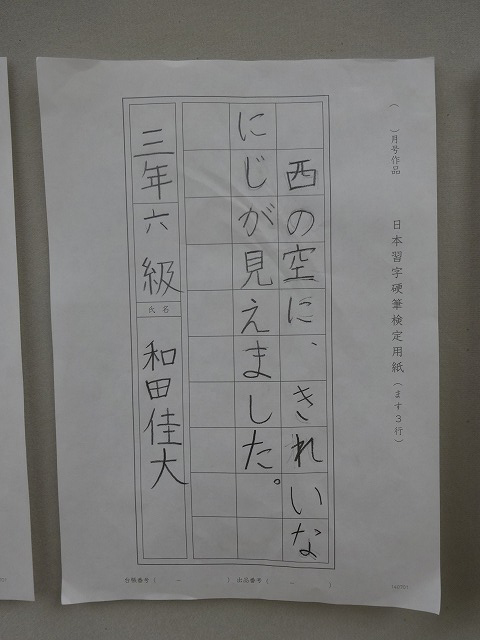 （　　）月号作品
日本習字硬筆検定用紙（ます３行）
西の空に、きれいな
にじが見えました。
三年六級
氏名
和田佳大
台帳番号（　　－　　　）　出品番号（　　－　　　）